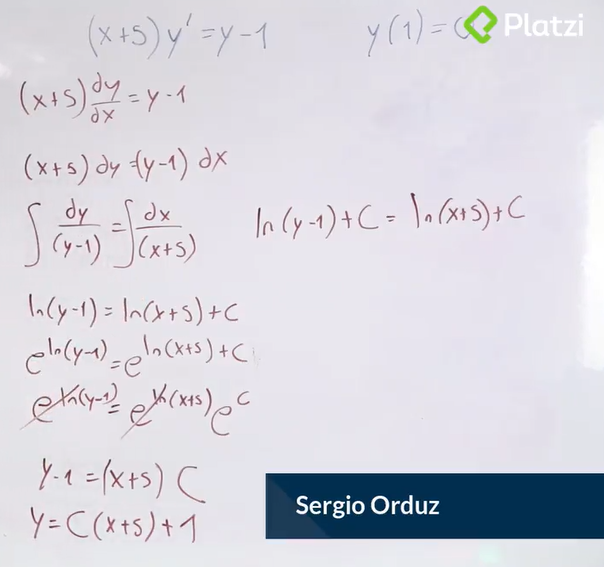 (x+5) y' = y-1
y(1) =
Platzi
(x+5) dy/dx = y-1
(x+5) dy = (y-1) dx
∫ dy/(y-1) = ∫ dx/(x+5)
ln(y-1)+C = ln(x+5)+C
ln(y-1) = ln(x+5)+C
e^ln(y-1) = e^ln(x+5)+C
e^ln(y-1) = e^ln(x+5) e^C
y-1 = (x+5) C
y = C(x+5)+1
Sergio Orduz